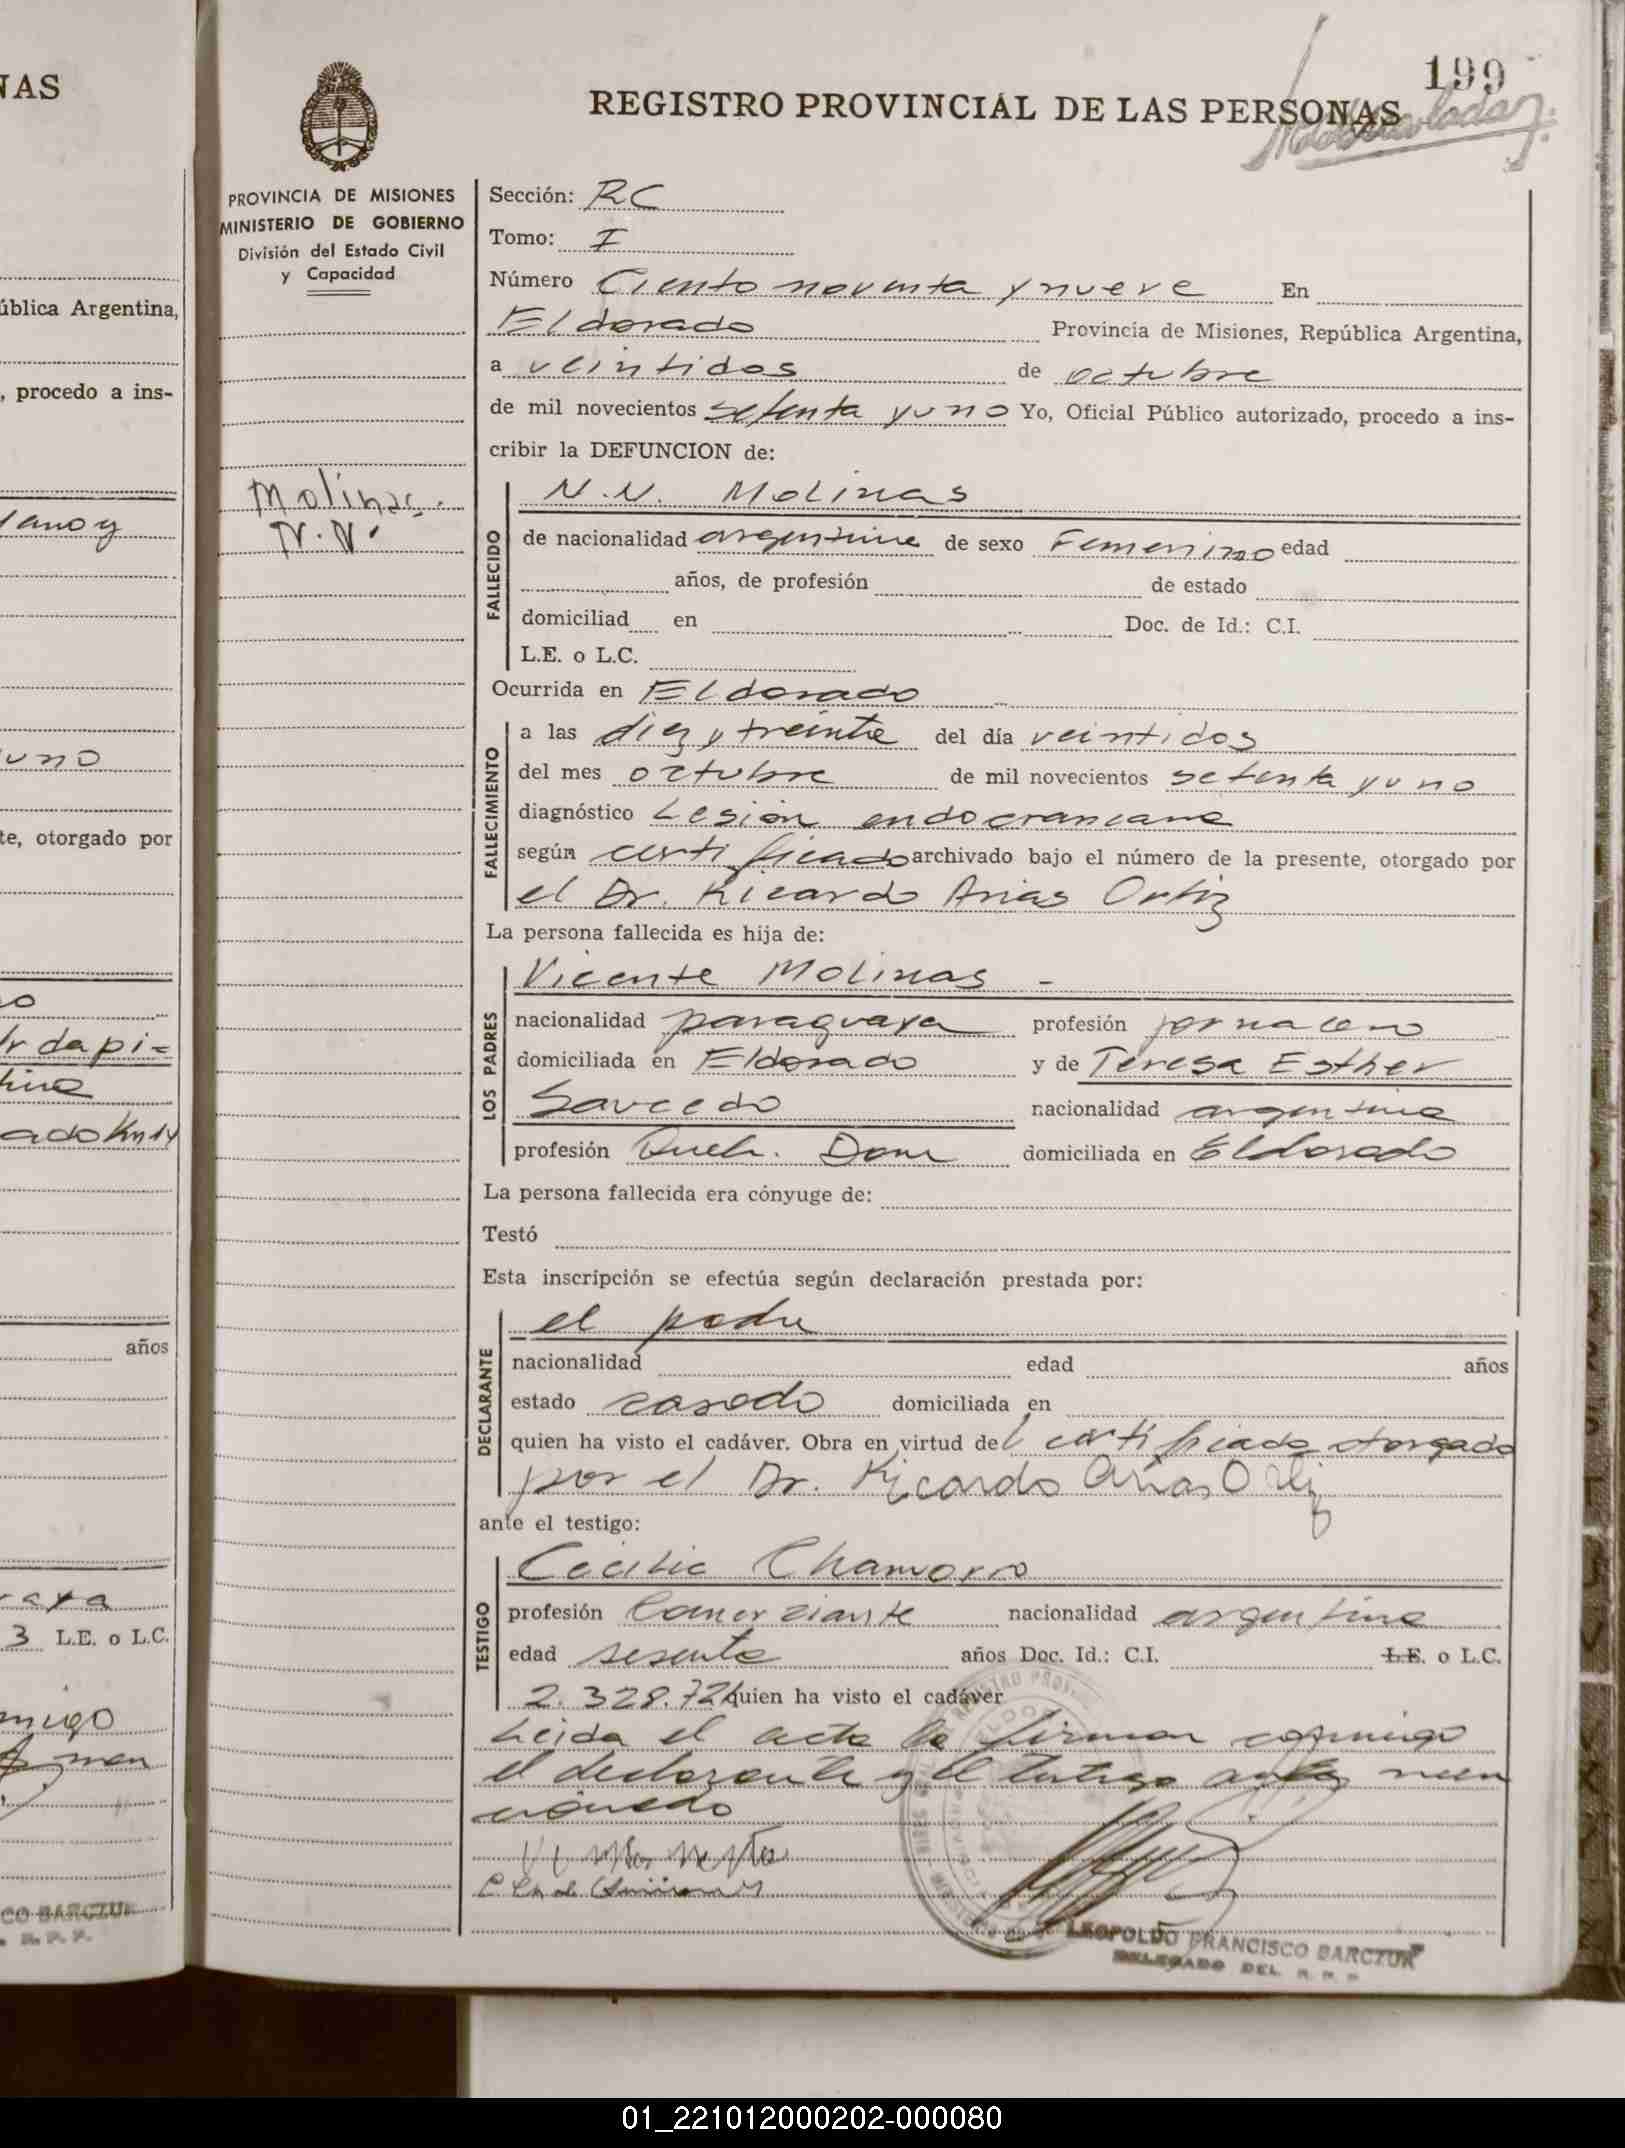 NAS
199
REGISTRO PROVINCIAL DE LAS PERSONAS
PROVINCIA DE MISIONES
MINISTERIO DE GOBIERNO
División del Estado Civil
y Capacidad
Molinas
N.N.
Sección: RC
Tomo: I
Número Ciento noventa y nueve En
Eldorado Provincia de Misiones, República Argentina,
a veintidos de octubre
de mil novecientos setenta y uno Yo, Oficial Público autorizado, procedo a ins-
cribir la DEFUNCION de:
FALLECIDO
N.N. Molinas
de nacionalidad argentina de sexo Femenino edad
años, de profesión de estado
domiciliad en Doc. de Id.: C.I.
L.E. o L.C.
Ocurrida en Eldorado
FALLECIMIENTO
a las diez y treinta del día veintidos
del mes octubre de mil novecientos setenta y uno
diagnóstico Lesión endocraneana
según certificado archivado bajo el número de la presente, otorgado por
el Dr. Ricardo Arias Ortiz
La persona fallecida es hija de:
LOS PADRES
Vicente Molinas -
nacionalidad paraguaya profesión jornalero
domiciliada en Eldorado y de Teresa Esther
Saucedo nacionalidad argentina
profesión Queh. Dom domiciliada en Eldorado
La persona fallecida era cónyuge de:
Testó
Esta inscripción se efectúa según declaración prestada por:
DECLARANTE
el padre
nacionalidad edad años
estado casado domiciliada en
quien ha visto el cadáver. Obra en virtud del certificado otorgado
por el Dr. Ricardo Arias Ortiz
ante el testigo:
TESTIGO
Cecilia Chamorro
profesión Comerciante nacionalidad argentina
edad sesenta años Doc. Id.: C.I. L.E. o L.C.
2.328.724 quien ha visto el cadáver
Leida el acta la firman conmigo
el declarante y el testigo
LEOPOLDO FRANCISCO BARCZUK
DELEGADO DEL R. P. P.
ública Argentina,
, procedo a ins-
uno
te, otorgado por
años
3 L.E. o L.C.
01_221012000202-000080